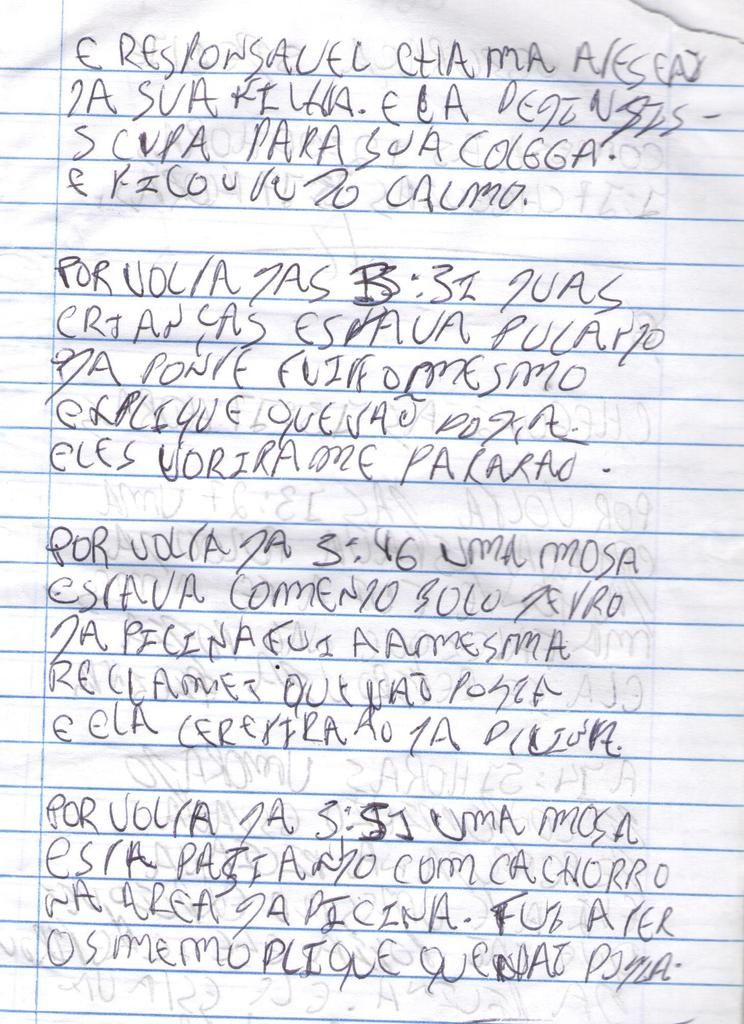 E RESPONSAVEL CHAMA
DA SUA FILHA. ELA
SCUPA PARA SUA COLEGGA.
E FICOU CALMO.
POR VOLTA DAS 3:31 DUAS
CRIANÇAS ESTAVA PULANDO
DA PONTE FUI MESMO
EXPLIQUE QUE NÃO PODIA.
ELES PARARAO.
POR VOLTA DA 3:46 UMA MOSA
ESTAVA COMENDO BOLO DETRO
DA PICINA FUI A AMESMA
RECLAMEI QUE NAO PODIA
E ELA DA PICINA.
POR VOLTA DA 3:51 UMA MOSA
ESTA PASIANDO COM CACHORRO
NA AREA DA PICINA. FUI ATER
OS MEMO PLIQUE QUE NAO PODIA.